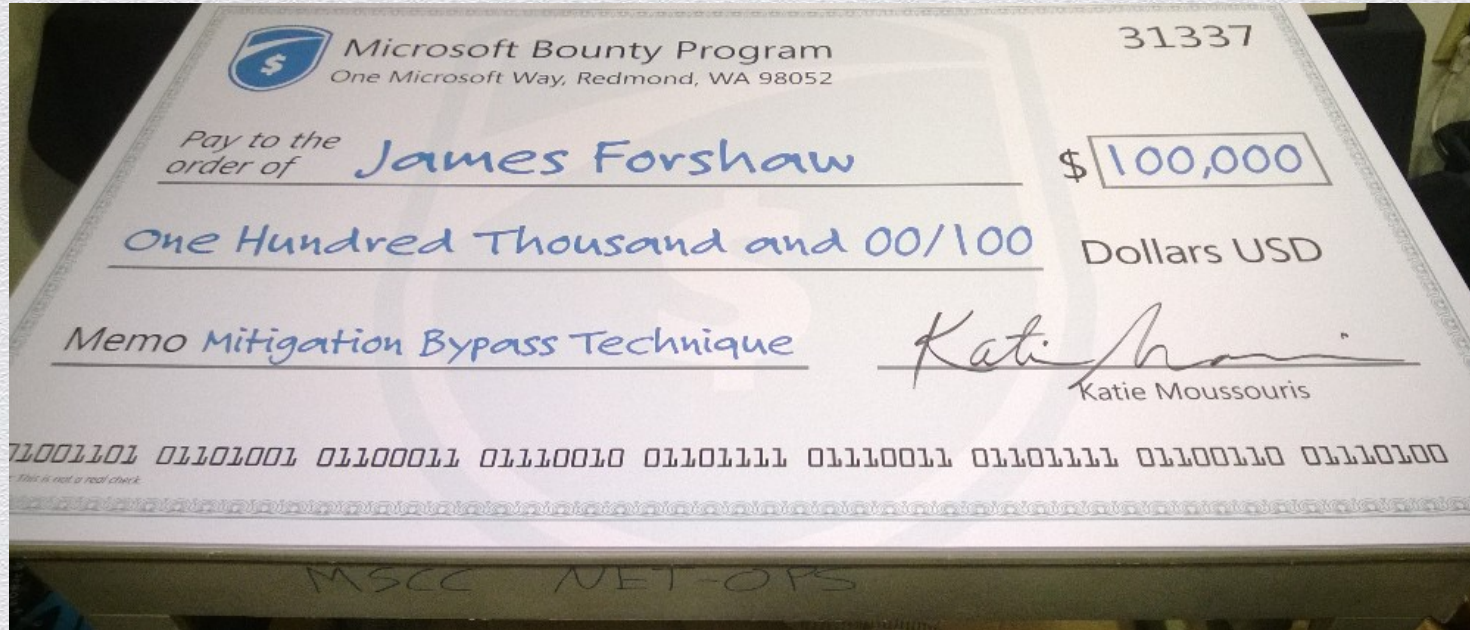 Microsoft Bounty Program
31337
One Microsoft Way, Redmond, WA 98052
Pay to the
order of James Forshaw $ 100,000
One Hundred Thousand and 00/100 Dollars USD
Memo Mitigation Bypass Technique
Katie Moussouris
1001101 01101001 01100011 01110010 01101111 01110011 01101111 01100110 01110100
This is not a real check.
MSCC NET-OPS